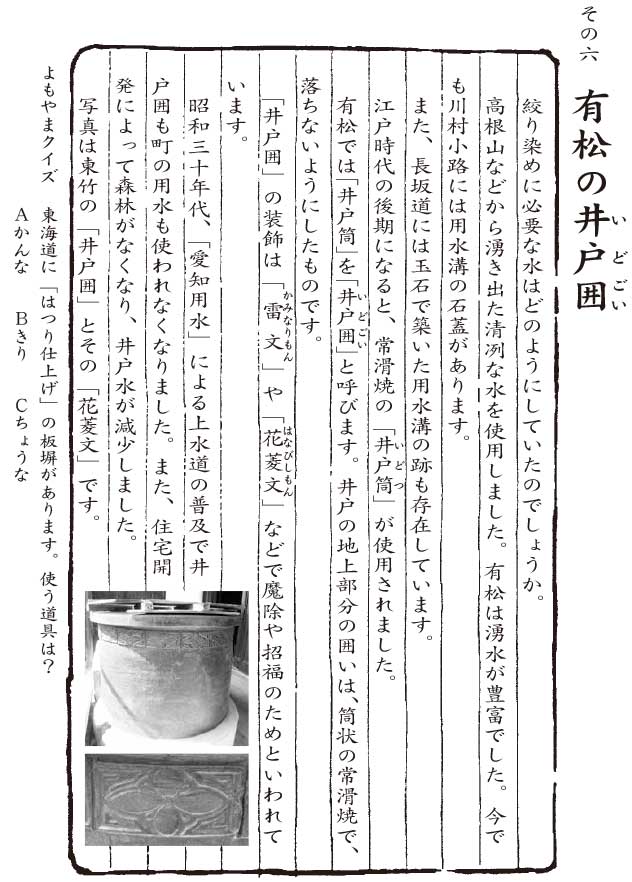 その六
有松の井戸囲
いどごい
絞り染めに必要な水はどのようにしていたのでしょうか。
高根山などから湧き出た清冽な水を使用しました。有松は湧水が豊富でした。今で
も川村小路には用水溝の石蓋があります。
また、長坂道には玉石で築いた用水溝の跡も存在しています。
江戸時代の後期になると、常滑焼の「井戸筒」が使用されました。
いどつつ
有松では「井戸筒」を「井戸囲」と呼びます。井戸の地上部分の囲いは、筒状の常滑焼で、
いどごい
落ちないようにしたものです。
「井戸囲」の装飾は「雷文」や「花菱文」などで魔除や招福のためといわれて
かみなりもん
はなびしもん
います。
昭和三十年代、「愛知用水」による上水道の普及で井
戸囲も町の用水も使われなくなりました。また、住宅開
発によって森林がなくなり、井戸水が減少しました。
写真は東竹の「井戸囲」とその「花菱文」です。
よもやまクイズ 東海道に「はつり仕上げ」の板塀があります。使う道具は？
Aかんな Bきり Cちょうな